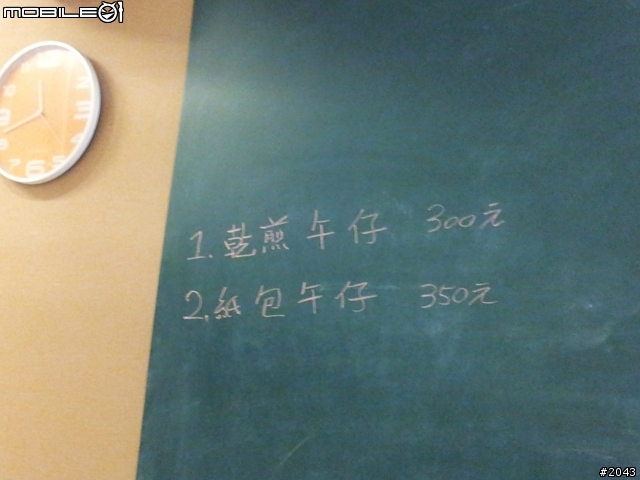 MOBILE01
1.乾煎午仔 300元
2.紙包午仔 350元
10
9
8
7
6
5
#2043